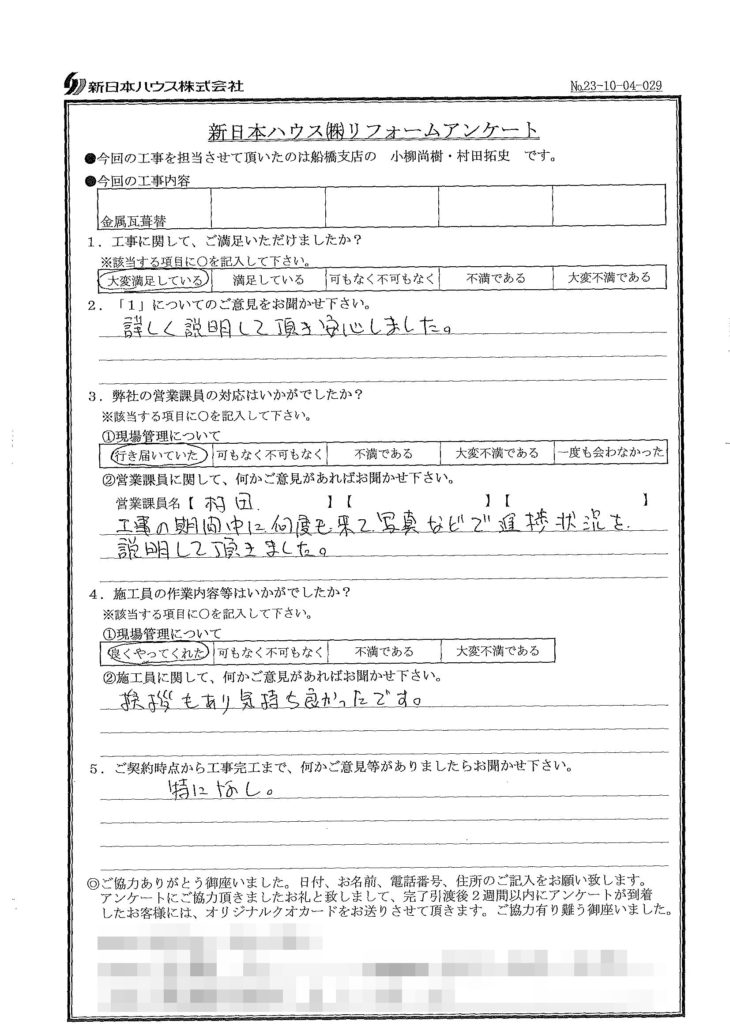 新日本ハウス株式会社
№23-10-04-029
新日本ハウス㈱リフォームアンケート
●今回の工事を担当させて頂いたのは船橋支店の 小柳尚樹・村田拓史 です。
●今回の工事内容
金属瓦葺替
1．工事に関して、ご満足いただけましたか？
※該当する項目に○を記入して下さい。
大変満足している 満足している 可もなく不可もなく 不満である 大変不満である
2．「1」についてのご意見をお聞かせ下さい。
詳しく説明して頂き安心しました。
3．弊社の営業課員の対応はいかがでしたか？
※該当する項目に○を記入して下さい。
①現場管理について
行き届いていた 可もなく不可もなく 不満である 大変不満である 一度も会わなかった
②営業課員に関して、何かご意見があればお聞かせ下さい。
営業課員名【 村田 】【 】【 】
工事の期間中に何度も来て写真などで進捗状況を
説明して頂きました。
4．施工員の作業内容等はいかがでしたか？
※該当する項目に○を記入して下さい。
①現場管理について
良くやってくれた 可もなく不可もなく 不満である 大変不満である
②施工員に関して、何かご意見があればお聞かせ下さい。
挨拶もあり気持ち良かったです。
5．ご契約時点から工事完工まで、何かご意見等がありましたらお聞かせ下さい。
特になし。
◎ご協力ありがとう御座いました。日付、お名前、電話番号、住所のご記入をお願い致します。
アンケートにご協力頂きましたお礼と致しまして、完了引渡後2週間以内にアンケートが到着
したお客様には、オリジナルクオカードをお送りさせて頂きます。ご協力有り難う御座いました。